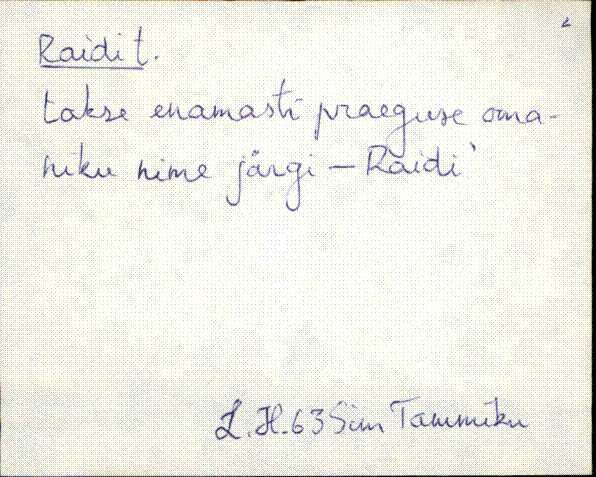 2
Raidi t.
takse enamasti praeguse oma-
niku nime järgi – Raidi`
L. H. 63 Sim Tammiku